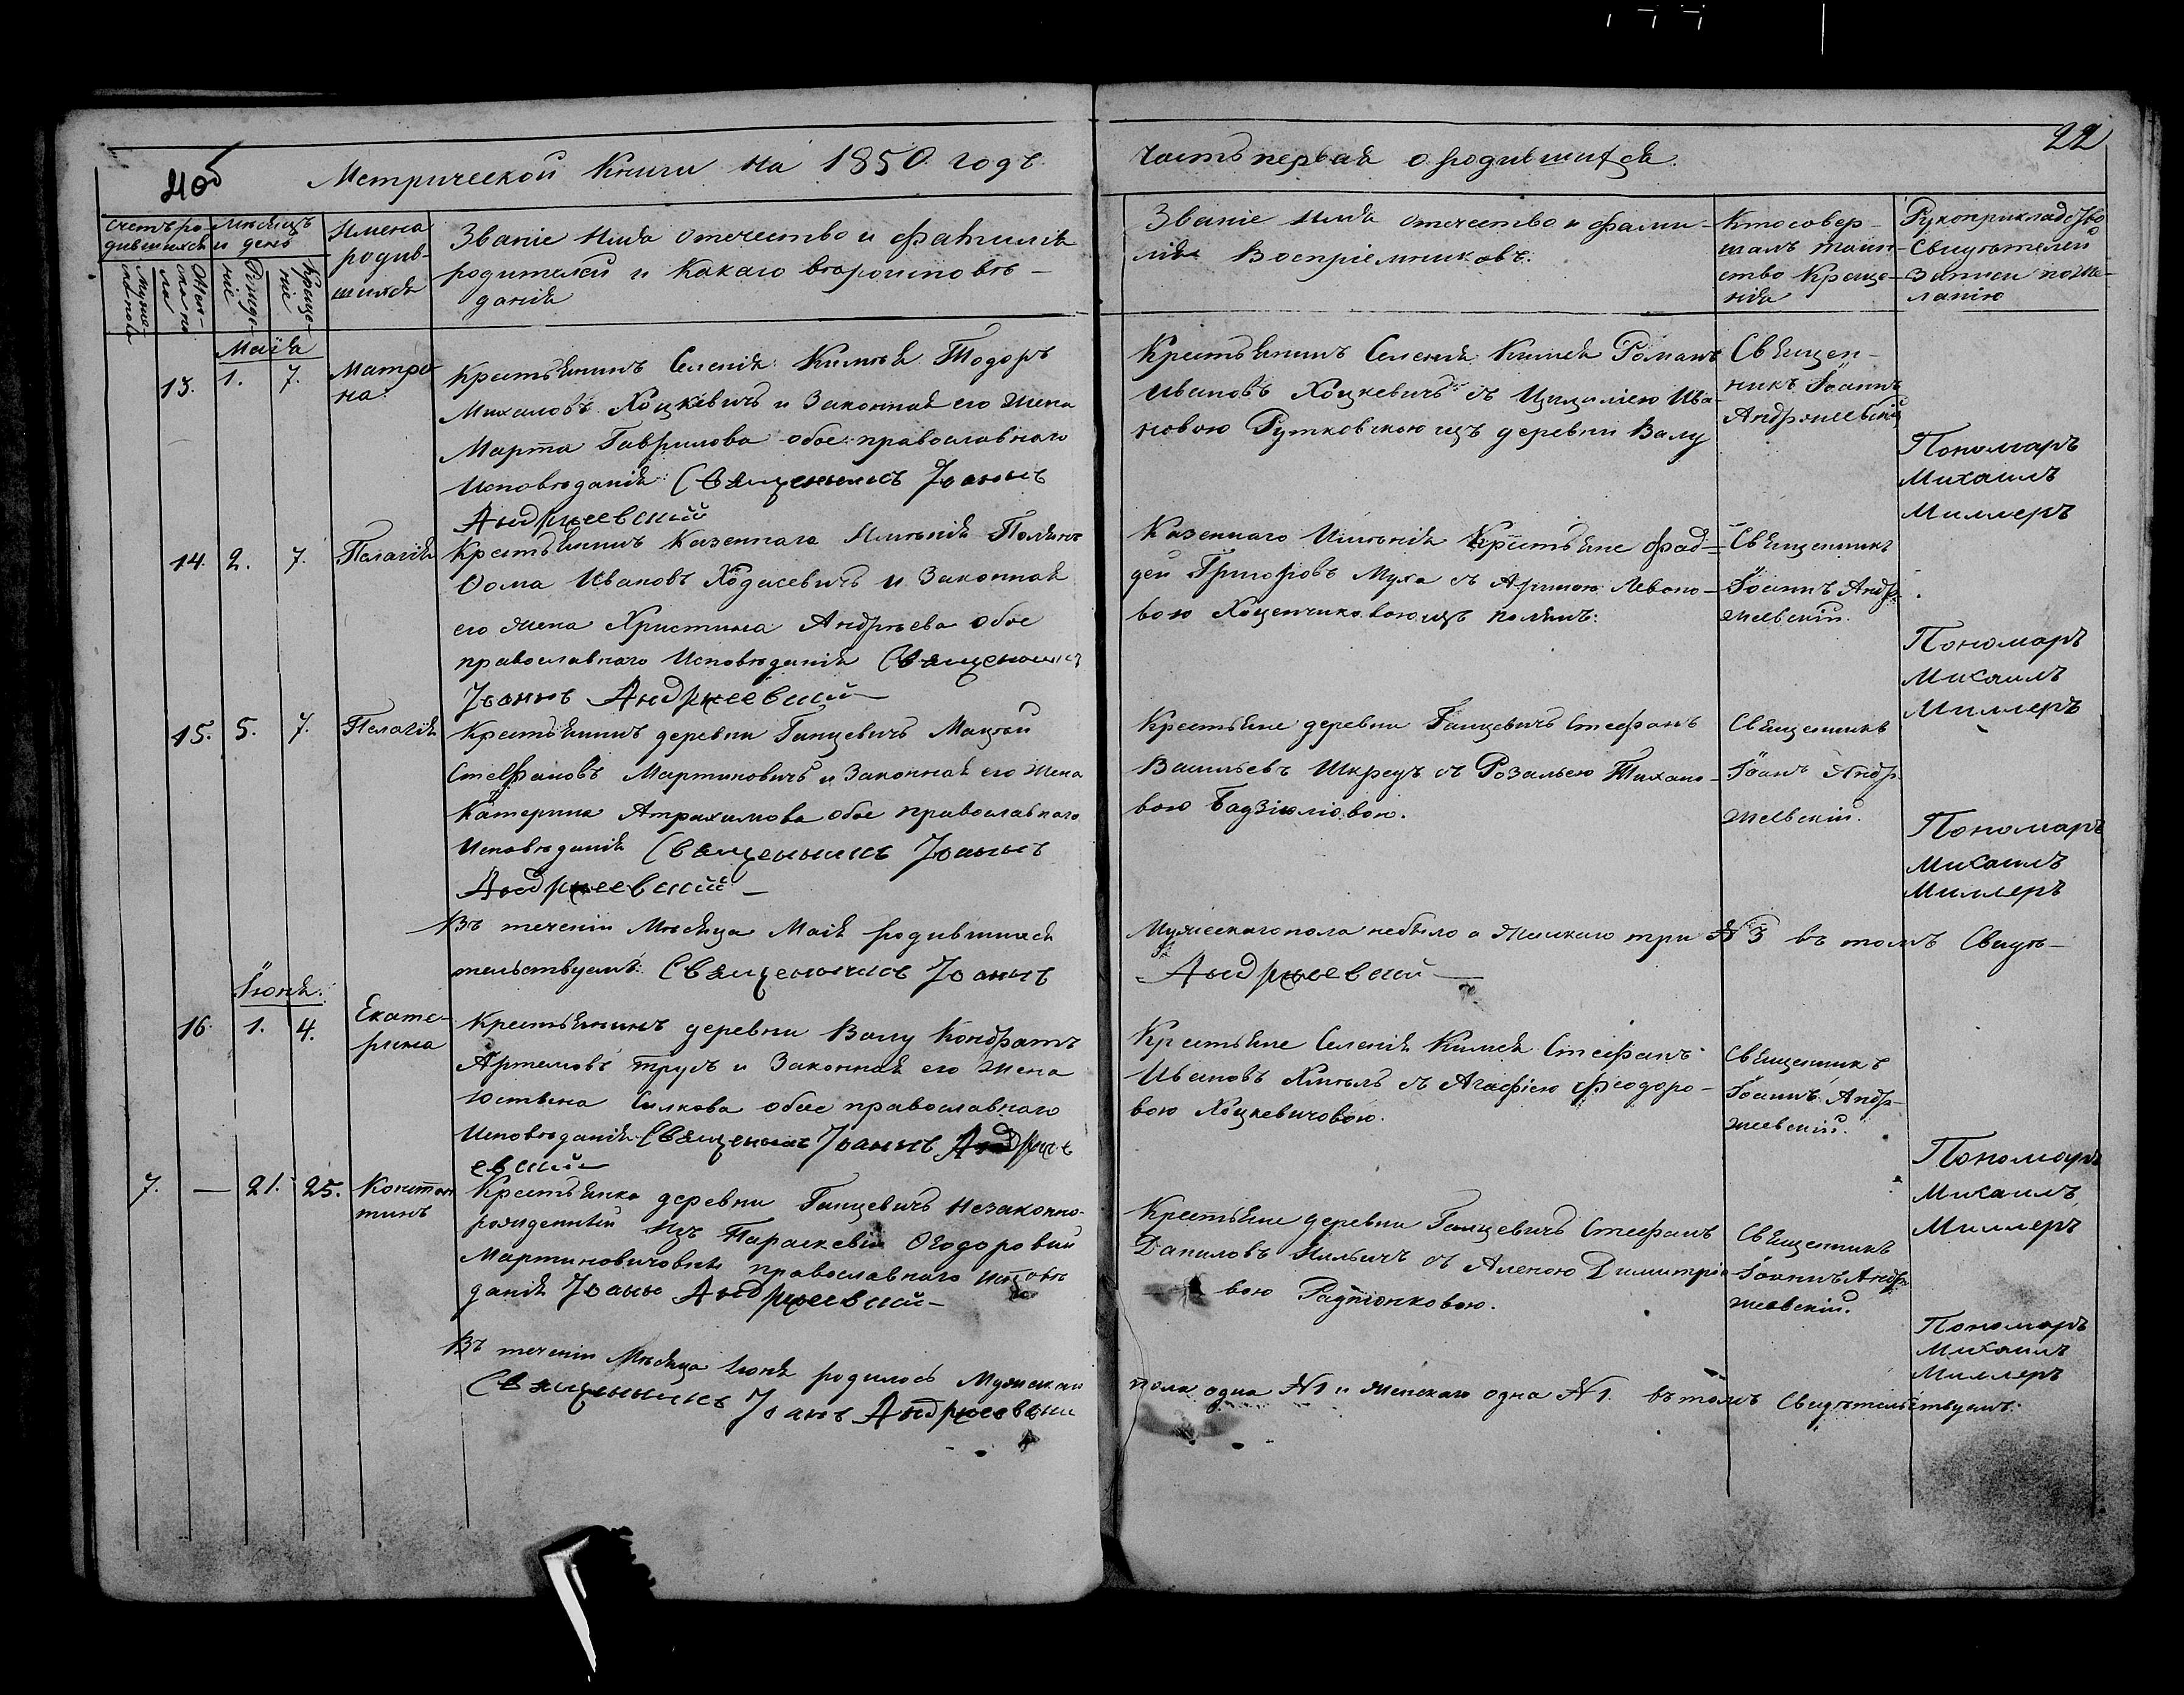 40б Метрической Книги на 1850 годъ.
часть первая о родившихся.
22
Счетъ ро-
дившихся
Мужес-
ка пола
Жен-
ска по
ла
Мѣсяцъ
и день
Рожде-
ніе
Креще-
ніе
Имена
родив-
шихся
Званіе Имя Отечество и фамилія
родителей и Какаго вѣроисповѣ-
данія
Званіе Имя отечество и фами-
лія Воспріемниковъ.
Кто совер-
шалъ таин-
ство Креще-
нія
Рукоприкладство
Свидѣтелей
Записи по же-
ланію
Маія
13. 1. 7.
Матро
на.
Крестьянинъ Селенія Килнея Тодоръ
Михаловъ Хоцкевичъ и Законная его жена
Марта Гаврилова обое православнаго
Исповѣданія: Священникъ Іоаннъ
Андржеевский
Крестьянинъ Селенія Романъ
Ивановъ Хоцкевичъ съ Цецилиею Ива-
новою Рутковскою изъ деревни Валу
Священ-
никъ Іоаннъ
Андржіевскій
Пономаръ
Михаилъ
Миллеръ
14. 2. 7.
Пелагія
Крестьянинъ Казеннаго Имѣнія
Ѳома Ивановъ Ходасевичъ и Законная
его жена Христина Андрѣева обое
православнаго Исповѣданія Священникъ
Іоаннъ Андржеевский
Казеннаго Имѣнія Крестьяне Фад-
дей Григоровъ Муха съ Ариною Левоно-
вою
Священникъ
Іоаннъ Андр-
жіевскій.
Пономаръ
Михаилъ
Миллеръ
15. 5. 7.
Пелагія
Крестьянинъ деревни Ганцевичъ Мацѣй
Стефановъ Мартиновичъ и Законная его жена
Катерина Атрахимова обое православнаго
Исповѣданія Священникъ Іоаннъ
Андржеевский
Крестьяне деревни Ганцевичъ Стефанъ
Васильевъ Шкредъ съ Розальею Тихано-
вою Бадзіюліовою.
Священникъ
Іоанъ Андр
жіевскій.
Пономаръ
Михаилъ
Миллеръ
Въ теченіи Мѣсяца Маія родившихся
Мужескаго пола небыло а Женскаго три №3 въ томъ Свидѣ-
тельствуемъ: Священникъ Іоаннъ
Андржеевский
Іюня.
16. 1. 4.
Екате-
рина
Крестьянинъ деревни Валу Кондратъ
Артемовъ Трусъ и Законная его жена
Юстына Силкова обое православнаго
Исповѣданія Священникъ Іоаннъ Андрже
евский
Крестьяне Селенія Стефанъ
Ивановъ съ Агафіею Феодоро-
вою Хоцкевичовою.
Священникъ
Іоаннъ Андр-
жіевскій.
Пономаръ
Михаилъ
Миллеръ
7. — 21. 25.
Констан
тинъ
Крестьянка деревни Ганцевичъ Незаконно-
рожденный Изъ Параскевіи Ѳѣодоровой
Мартиновичовны православнаго Исповѣ
данія Іоанъ Андржеевский
Крестьяне деревни Ганцевичъ Стефанъ
Даниловъ Ильичъ съ Аленою Димитріе
вою Радіюнковою.
Священникъ
Іоаннъ Андр
жіевскій.
Пономаръ
Михаилъ
Миллеръ
Въ теченіи Мѣсяца Іюня родилось Мужскаго
пола одна №1 и Женскаго одна №1. въ томъ Свидѣтельствуемъ:
Священникъ Іоанъ Андржеевский